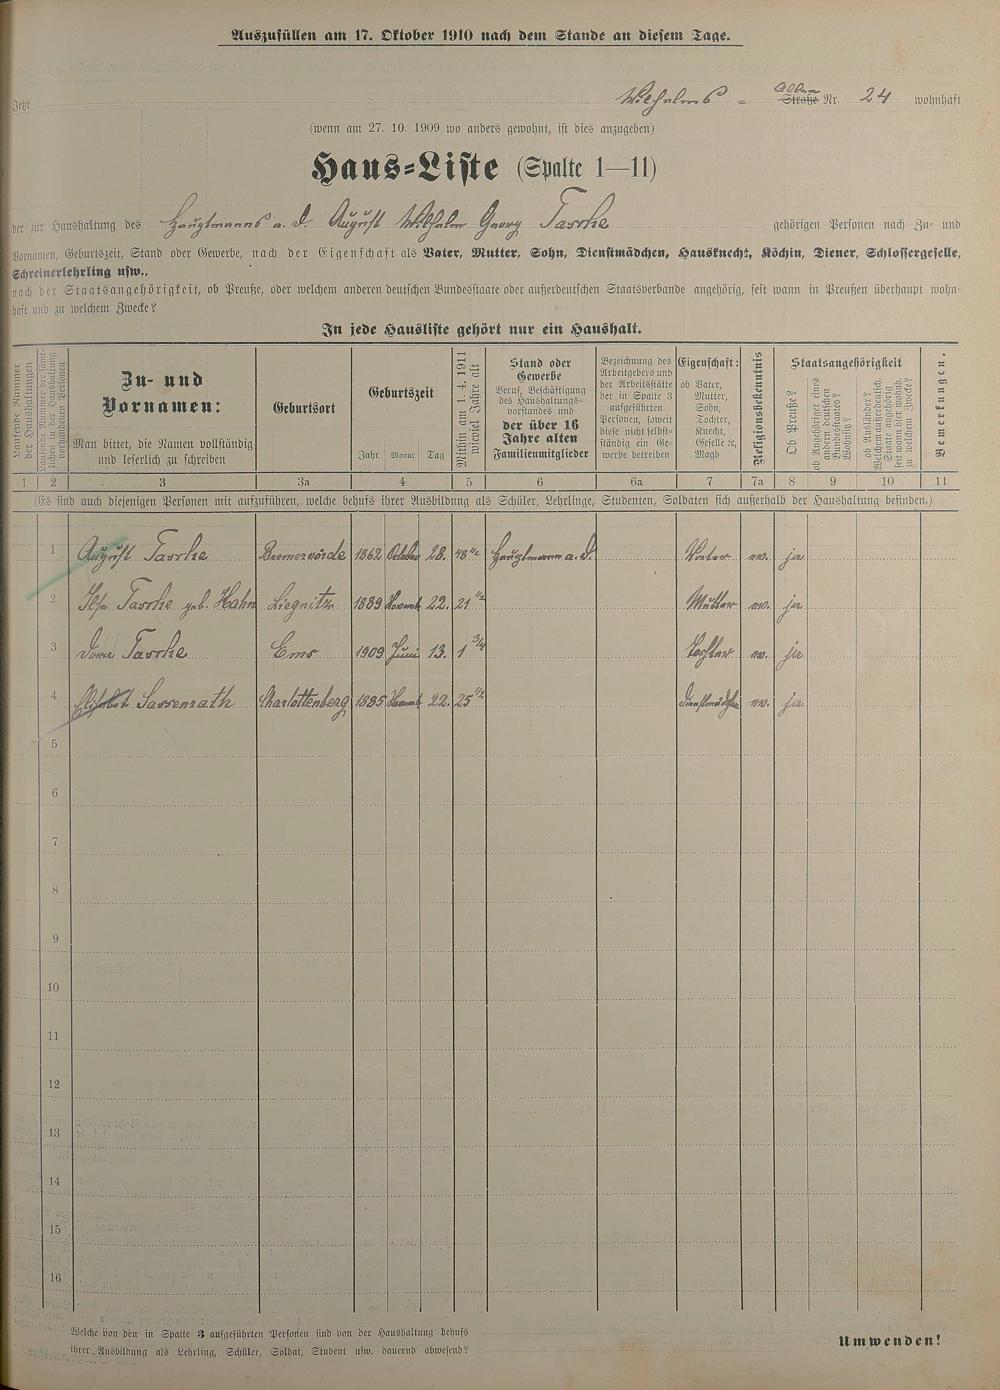 Auszufüllen am 17. Oktober 1910 nach dem Stande an diesem Tage.
Jetzt Wilhelms = Allee Straße Nr. 24 wohnhaft
(wenn am 27. 10. 1909 wo anders gewohnt, ist dies anzugeben)
Haus-Liste (Spalte 1—11)
der zur Haushaltung des Hauptmanns a. D. August Wilhelm Georg Tasche gehörigen Personen nach Zu- und
Vornamen, Geburtszeit, Stand oder Gewerbe, nach der Eigenschaft als Vater, Mutter, Sohn, Dienstmädchen, Hausknecht, Köchin, Diener, Schlossergeselle,
Schreinerlehrling usw.,
nach der Staatsangehörigkeit, ob Preuße, oder welchem anderen deutschen Bundesstaate oder außerdeutschen Staatsverbande angehörig, seit wann in Preußen überhaupt wohn-
haft und zu welchem Zwecke?
In jede Hausliste gehört nur ein Haushalt.
Laufende Nummer der Haushaltungen
Laufende Nummer der sämt-
lichen in der Haushaltung
vorhandenen Personen
Zu- und
Vornamen:
Man bittet, die Namen vollständig
und leserlich zu schreiben
Geburtsort
Geburtszeit
Jahr Monat Tag
Mithin am 1. 4. 1911
wieviel Jahre alt
Stand oder
Gewerbe
Beruf, Beschäftigung
des Haushaltungs-
vorstandes und
der über 16
Jahre alten
Familienmitglieder
Bezeichnung des
Arbeitgebers und
der Arbeitsstätte
der in Spalte 3
aufgeführten
Personen, soweit
diese nicht selbst-
ständig ein Ge-
werbe betreiben
Eigenschaft:
ob Vater,
Mutter,
Sohn,
Tochter,
Knecht,
Geselle ec,
Magd
Religionsbekenntnis
Staatsangehörigkeit
Ob Preuße?
ob Angehöriger eines
andern deutschen
Bundesstaates?
Wohnsitz?
ob Ausländer?
Welchem außerdeutsch.
Staate angehörig
seit wann hier wohnh.
zu welchem Zwecke?
Bemerkungen.
1 2 3 3a 4 5 6 6a 7 7a 8 9 10 11
(Es sind auch diejenigen Personen mit aufzuführen, welche behufs ihrer Ausbildung als Schüler, Lehrlinge, Studenten, Soldaten sich außerhalb der Haushaltung befinden.)
1 August Tasche Bremervörde 1862 Oktober 28. 48 1/2 Hauptmann a. D. Vater ev. ja
2 Ilse Tasche geb. Hahn Liegnitz 1889 Novemb. 22. 21 1/2 Mutter ev. ja
3 Tasche Ems 1909 Juni 13. 1 3/4 Tochter ev. ja
4 Elisabet Sassenrath Charlottenberg 1885 22. 25 1/2 Dienstmädchen ev. ja
5
6
7
8
9
10
11
12
13
14
15
16
Welche von den in Spalte 3 aufgeführten Personen sind von der Haushaltung behufs
ihrer Ausbildung als Lehrling, Schüler, Soldat, Student usw. dauernd abwesend?
Umwenden!